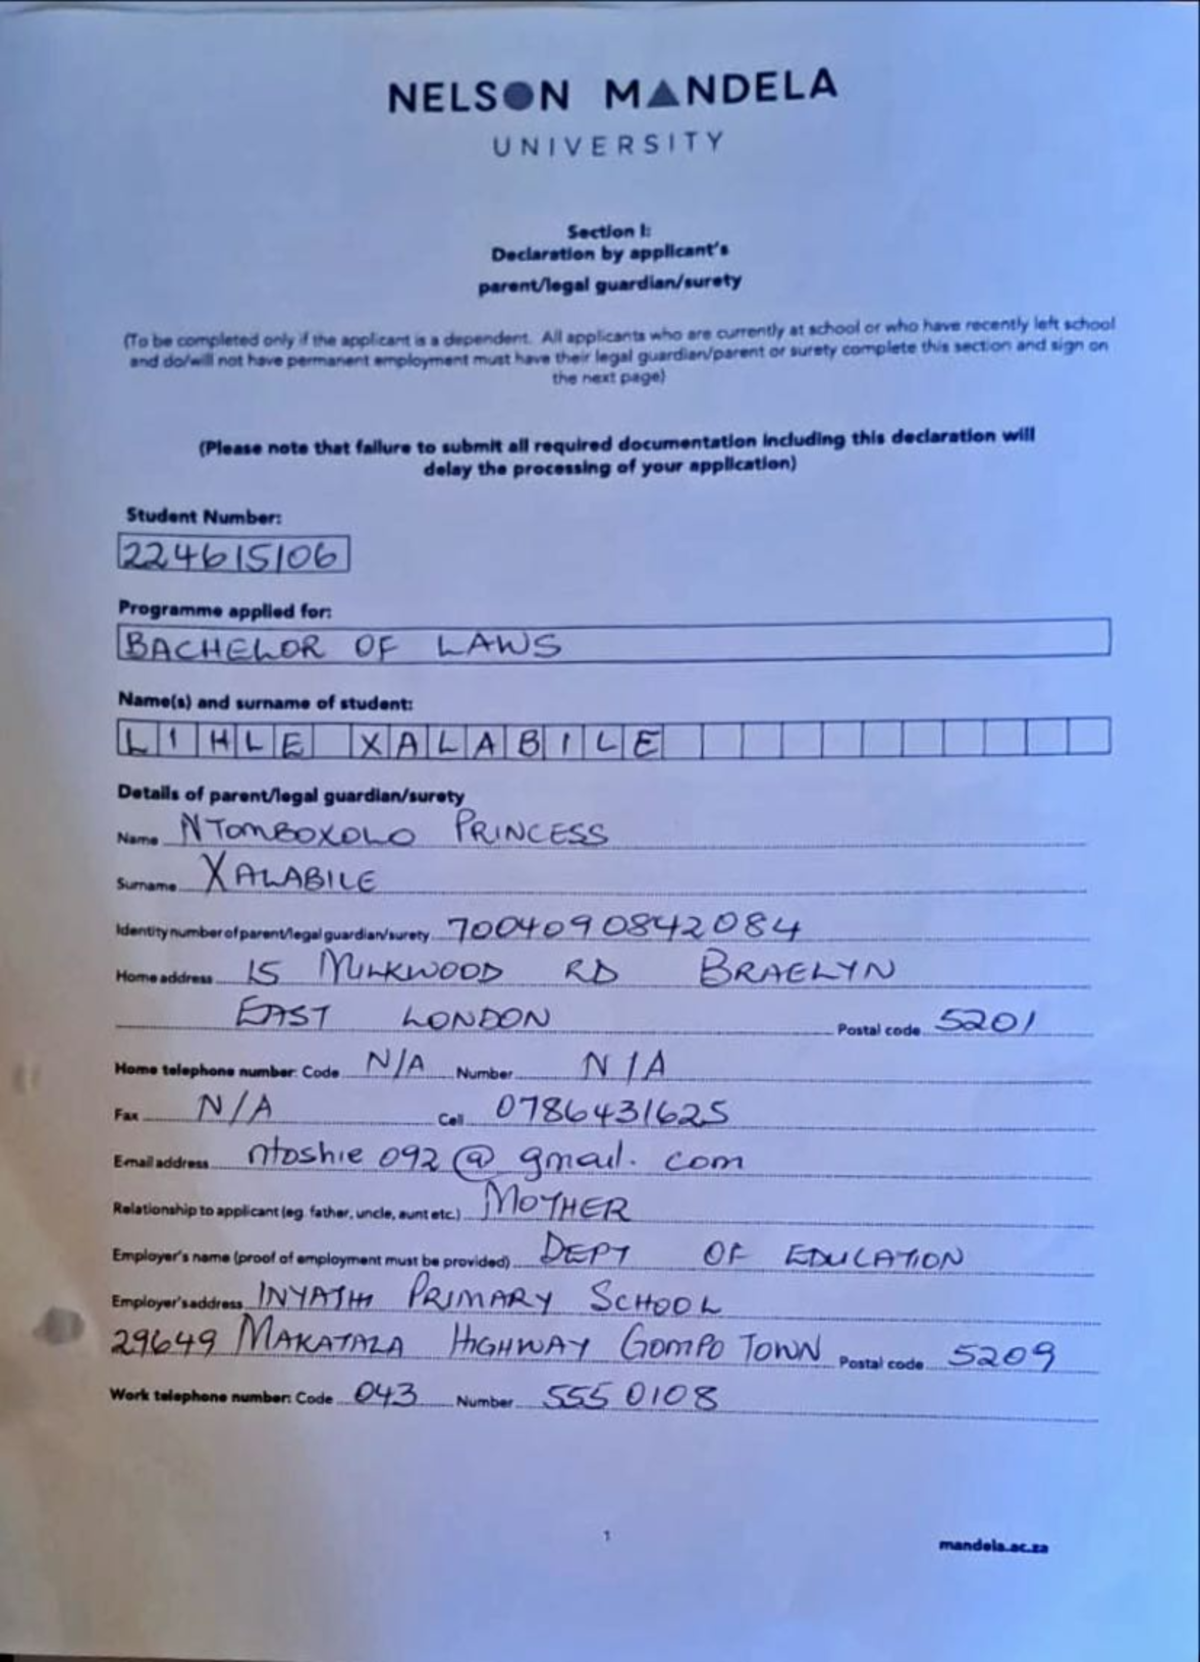 NELSON MANDELA
UNIVERSITY
Section I:
Declaration by applicant's
parent/legal guardian/surety
(To be completed only if the applicant is a dependent. All applicants who are currently at school or who have recently left school
and do/will not have permanent employment must have their legal guardian/parent or surety complete this section and sign on
the next page)
(Please note that failure to submit all required documentation including this declaration will
delay the processing of your application)
Student Number:
224615106
Programme applied for:
BACHELOR OF LAWS
Name(s) and surname of student:
LIHLE XALABILE
Details of parent/legal guardian/surety
Name NTOMBOXOLO PRINCESS
Surname XALABILE
Identity number of parent/legal guardian/surety 7004090842084
Home address 15 MILKWOOD RD BRAELYN
EAST LONDON Postal code 5201
Home telephone number: Code N/A Number N/A
Fax N/A Cell 0786431625
Email address ntoshie092@gmail.com
Relationship to applicant (eg. father, uncle, aunt etc.) MOTHER
Employer's name (proof of employment must be provided) DEPT OF EDUCATION
Employer's address PRIMARY SCHOOL
29649 HIGHWAY GOMPO TOWN Postal code 5209
Work telephone number: Code 043 Number 555 0108
1
mandela.ac.za